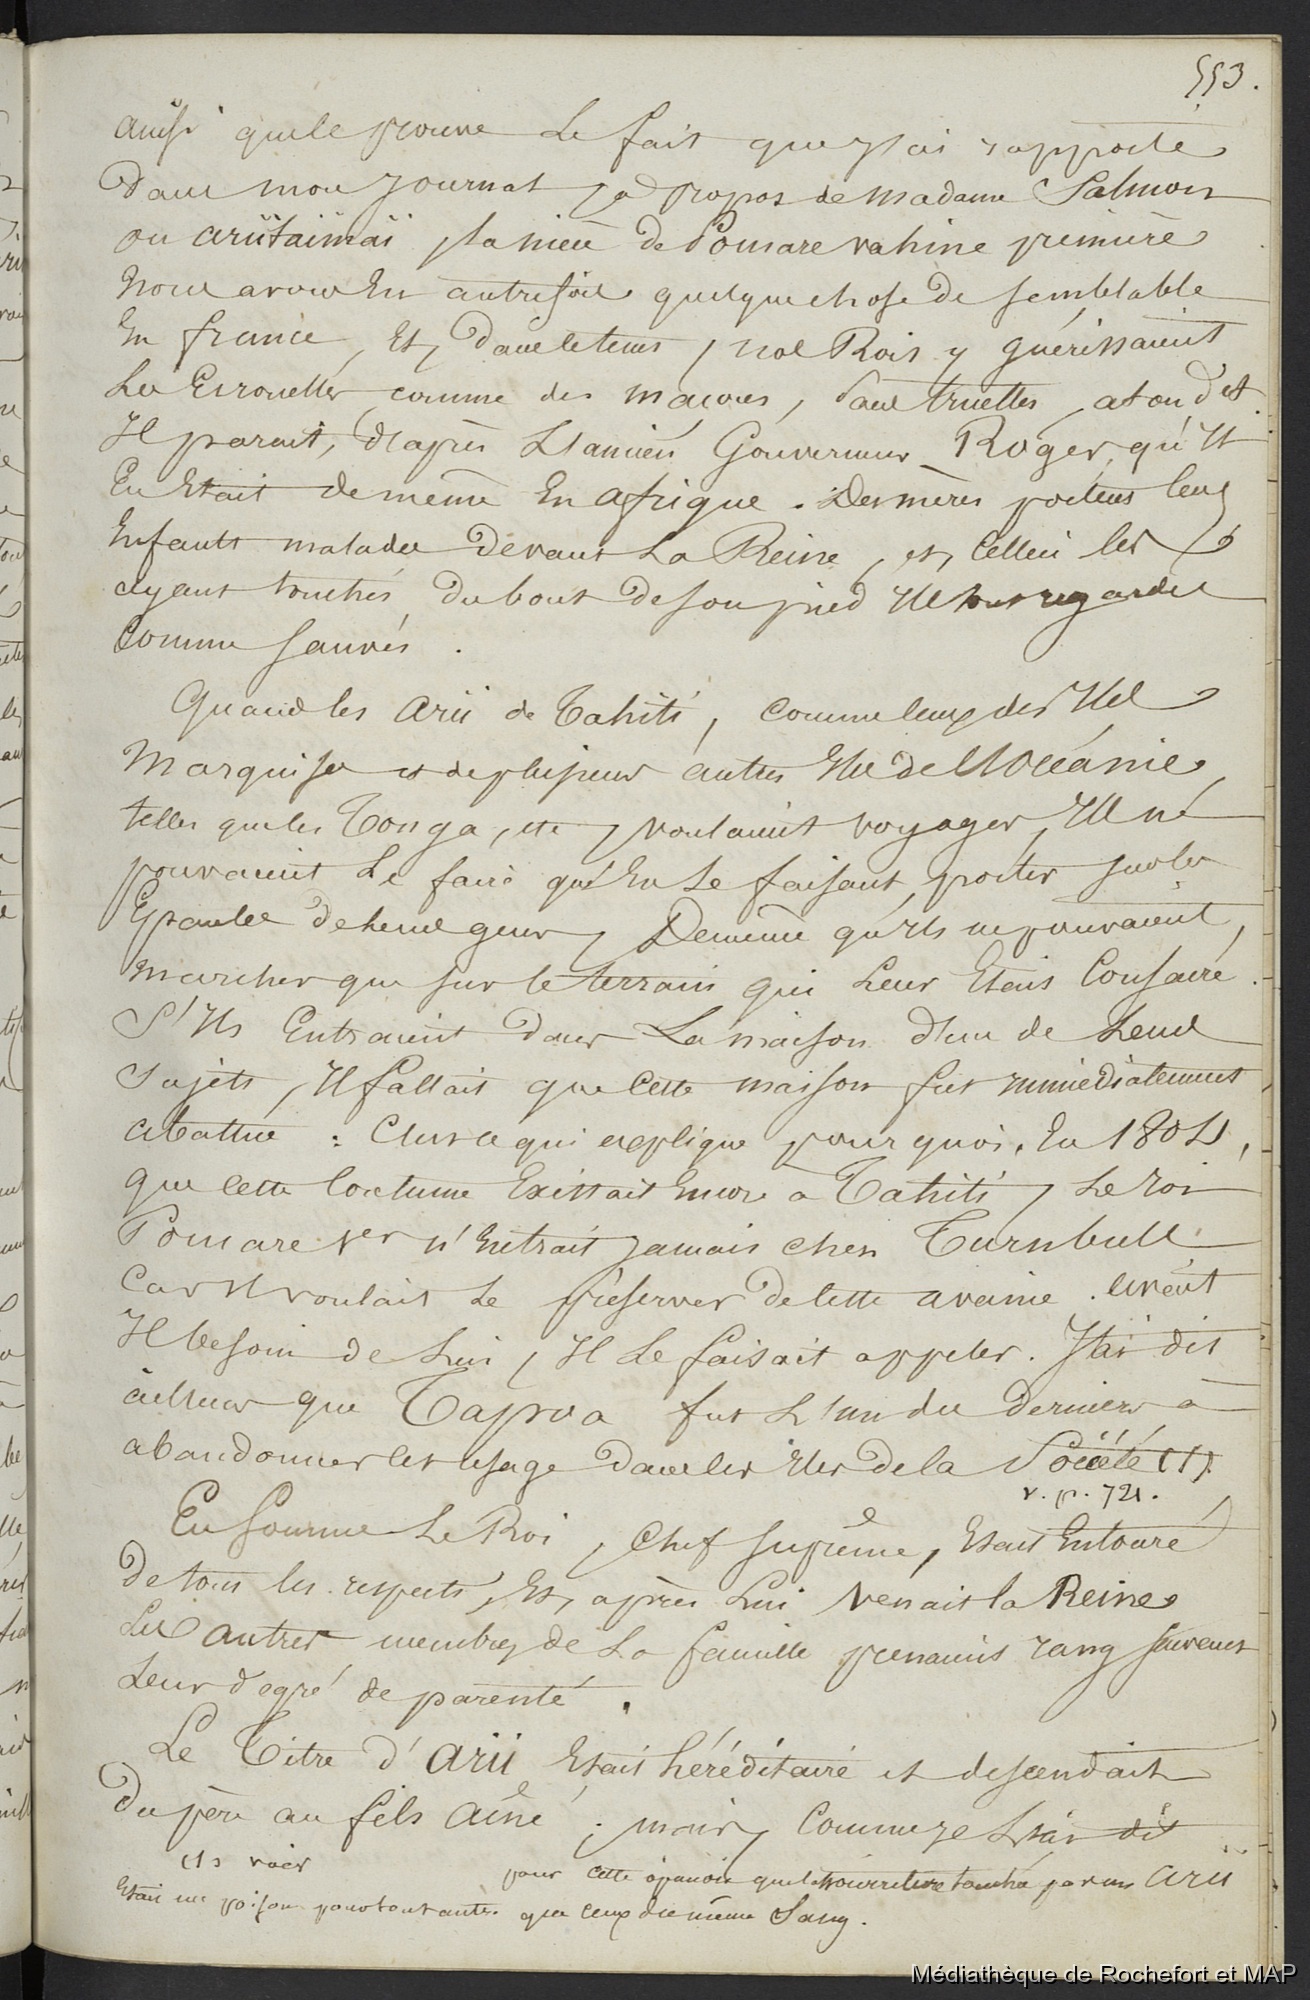 553.
ainsi que le prouve le fait que j'ai rapporté
dans mon journal, à propos de madame Salmon
ou ariitaimai, la nièce de Pomare vahine première
nous avons eu autrefois quelque chose de semblable
en france, et, dans le tems, nos Rois y guérissaient
les Ecrouelles comme des maçons, sans truelles, a t on dit.
Il parait, d'après l'ancien Gouverneur Roger, qu'il
en était de même en afrique. Des mères portens leurs
enfants malades devant la Reine, et, celle ci les
ayant touchés du bout de son pied ils sont regardés
comme sauvés.
Quand les arii de Tahiti, comme ceux des Iles
Marquises et de plusieurs autres Iles de l'Océanie,
telles que les Tonga, etc, voulaient voyager, ils ne
pouvaient le faire qu'en se faisant porter sur les
Epaules de leurs gens, De même qu'ils ne pouvaient,
marcher que sur le terrain qui leur était consacré.
S'ils entraient dans la maison d'un de leurs
sujets, il fallait que cette maison fut immédiatement
abattue : C'est ce qui explique pourquoi, en 1804,
que cette coutume existait encore à Tahiti, le roi
Pomare 1er n'entrait jamais chez Turnbull
car il voulait le préserver de cette avanie. avait
Il besoin de lui, il le faisait appeler. J'ai dit
ailleurs que Tapoa fut l'un des derniers à
abandonner cet usage dans les iles de la Société (1).
v. p. 721.
En somme le Roi, Chef suprême, était entouré
de tous les respects, et, après lui venait la Reine
Les autres membres de la famille prenaient rang suivant
leur degré de parenté.
Le Titre d'arii était héréditaire et descendait
du père au fils ainé ; mais, comme je l'ai dit
(1) voir pour cette opinion que la nourriture touchée par un arii
était un poison pour tout autre que ceux du même Sang.
Médiathèque de Rochefort et MAP